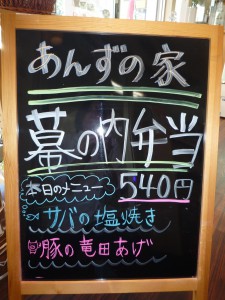 あんずの家
幕の内弁当
本日のメニュー 540円
サバの塩焼き
旬 豚の竜田あげ